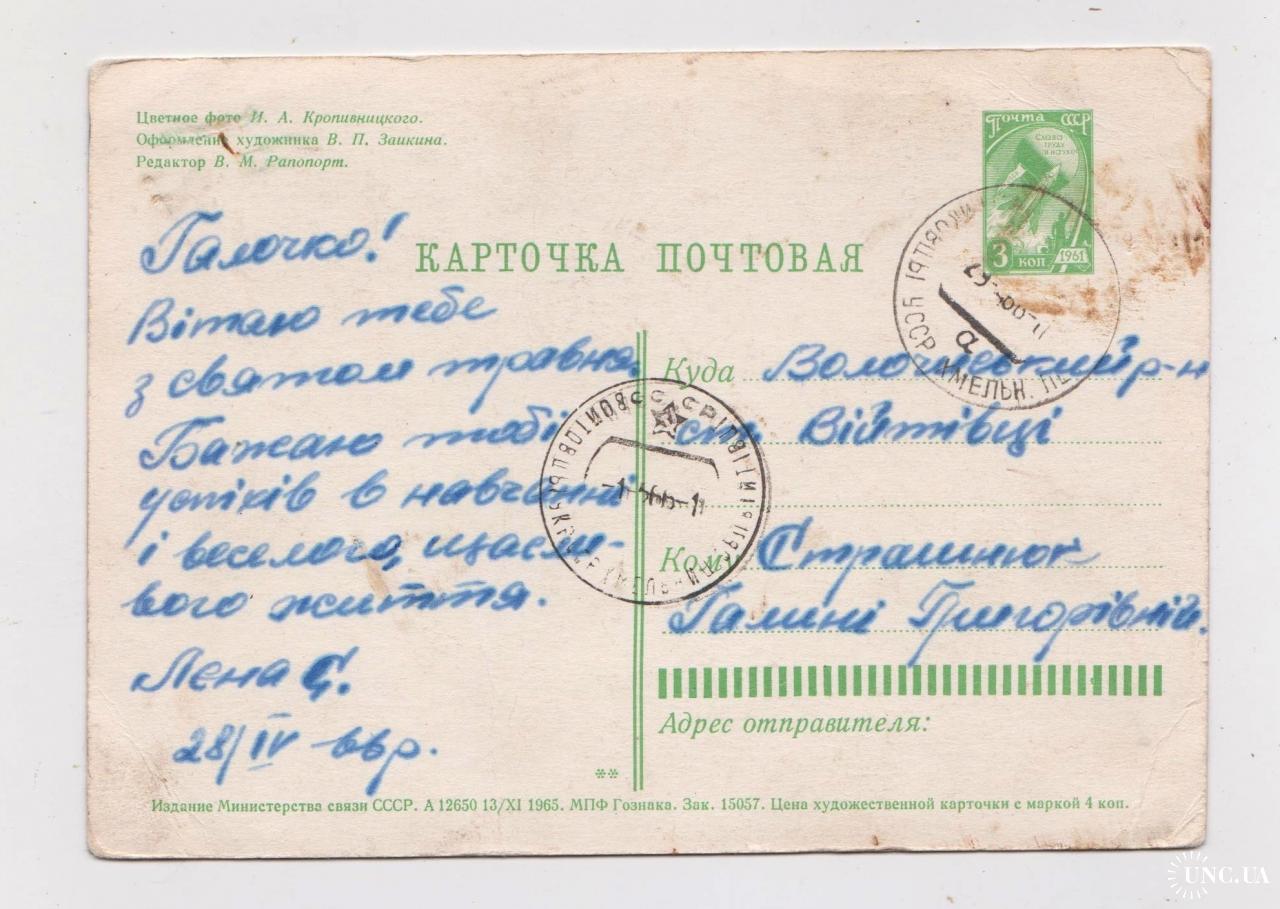 Цветное фото И. А. Кропивницкого.
Оформление художника В. П. Заикина.
Редактор В. М. Рапопорт.
Почта СССР
СЛАВА
ТРУДУ
И НАУКЕ
3 КОП 1961
КАРТОЧКА ПОЧТОВАЯ
Галочко!
Вітаю тебе
з святом травня.
Бажаю тобі
успіхів в навчанні
і веселого, щасли-
вого життя.
Лєна С.
28/IV 66р.
Куда Волочиський р-н
ст. Війтівці
Кому Страшнюк
Галині Григорівній.
УССР ХМЕЛЬН.
а
Адрес отправителя:
**
Издание Министерства связи СССР. А 12650 13/XI 1965. МПФ Гознака. Зак. 15057. Цена художественной карточки с маркой 4 коп.
UNC.UA